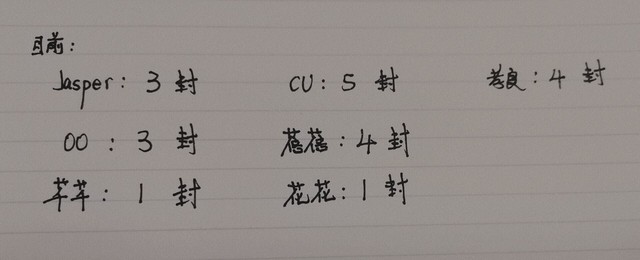 目前:
Jasper: 3 封 CU: 5 封 : 4 封
OO : 3 封 蓓蓓: 4 封
芊芊: 1 封 花花: 1 封